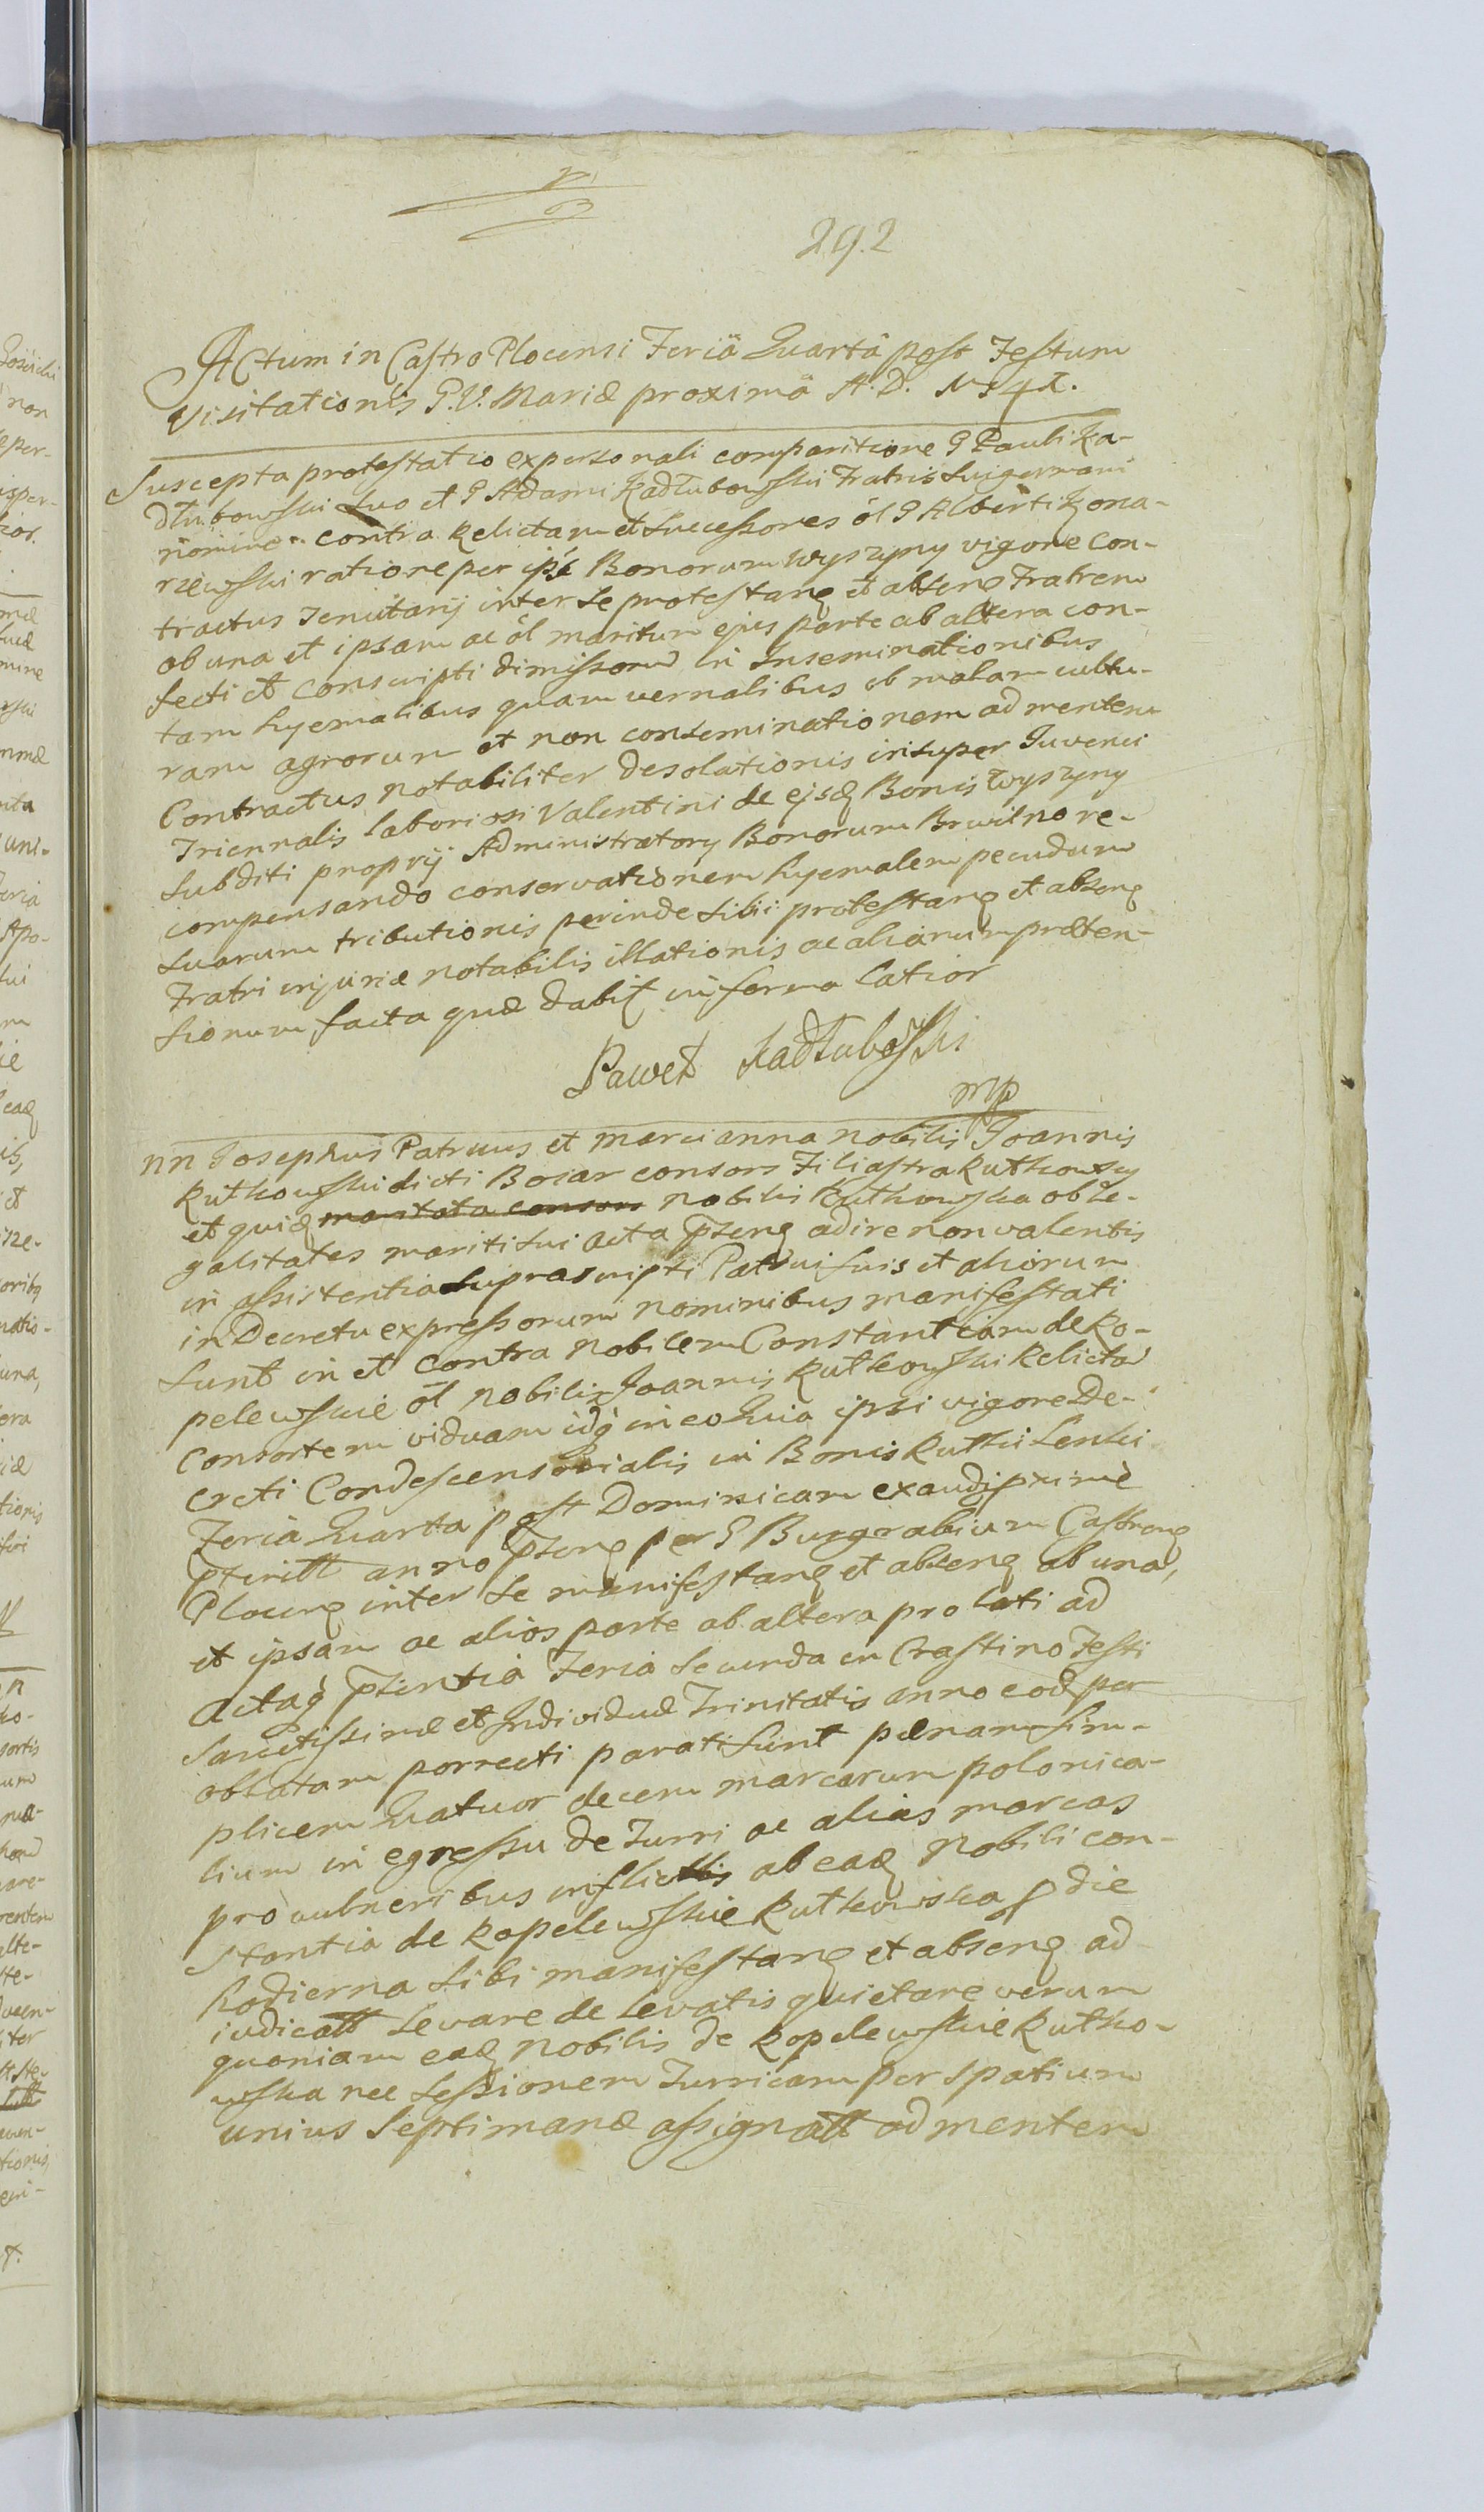 292
Actum in Castro Plocensi Feria Quarta post Festum
Visitationis P.V. Mariæ proxima A.D.
Suscepta protestatio ex personali comparitione G Pauli Ka-
dłubowski suo et G Adami Kadłubowski Fratris sui germani
nomine contra Relictam et Successores ol G Alberti
rzewski ratione per Bonorum Wyszyny vigore Con-
tractus Tenutarij inter se protestanq et absenq Fratrem
ab una et ipsam ac ol maritum ejus parte ab altera con-
fecti et conscripti dimissorum in Inseminationibus
tam hyemalibus quam vernalibus ob malam cultu-
ram agrorum et non conseminationem ad mentem
Contractus notabiliter desolationis insuper Iuvenci
Triennalis laboriosi Valentini de ejsdq Bonis Wyszyny
subditi proprij Administratory Bonorum Brwilno re-
compensando conservationem hyemalem pecudum
suarum tributionis perinde sibi protestanq et absenq
Fratri injuriæ notabilis illationis ac aliarum præten-
sionum facta quæ dabit in forma latior
Paweł Kadłubowski
mp
nn Josephus Patruus et Marcianna nobilis Joannis
Rutkowski dicti Bocar consors Filiastra Rutkowscy
et quidq maritata consors nobilis Rutkowska ob le-
galitates mariti sui acta psenq adire non valentis
in assistentia suprascripti Patrui suis et aliorum
in Decretu expressorum nominibus manifestati
sunt in et contra nobilem Constantiam de Ko-
pelewskie ol nobilis Joannis Rutkowski Relictam
Consortem viduam idq in eo Quia ipsi vigore De-
creti Condescensorialis in Bonis Rutki Lenki
Feria Quarta post Dominicam exaudi pxime
pteritt anno psenq per G Burgrabium Castrenq
Plocenq inter se manifestanq et absenq ab una,
et ipsam ac alios parte ab altera prolati ad
actaq psentia Feria Secunda in Crastino Festi
Sanctissimæ et Individuæ Trinitatis anno eodq per
oblatam porrecti parati sunt pænam sim-
plicem Quatuor decem marcarum polonica-
lium in egressu de Turri ac alias marcas
pro vulneribus inflictis ab eadq Nobili Con-
stantia de Kopelewskie Rutkowska p die
hodierna sibi manifestanq et absenq ad-
iudicatt levare de levatis quietare verum
quoniam eadq Nobilis de Kopelewskie Rutko-
wska nec sessionem Turricam per spatium
unius Septimanæ assignatt ad mentem